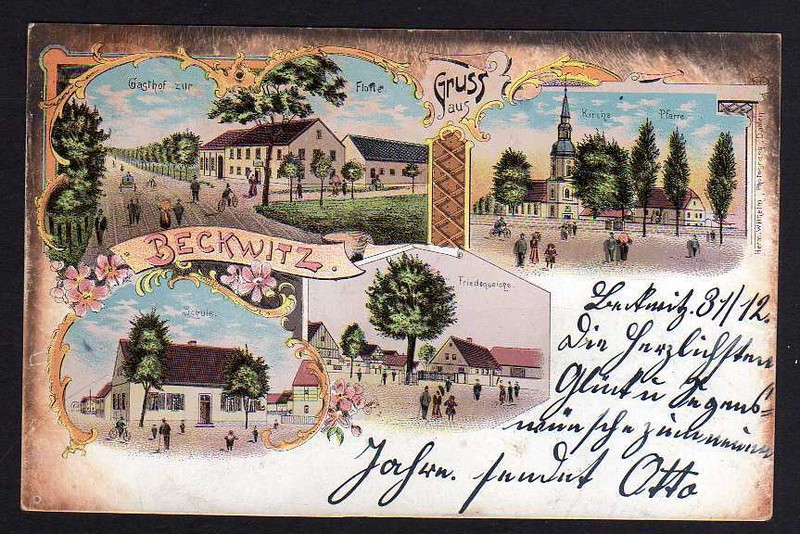 Gasthof zur Flotte
Gruss
aus
Kirche Pfarre
BECKWITZ
Friedenseiche.
Schule.
Herm. Wilhelm
Beckwitz. 31/12.
Die herzlichsten
Glück u Segens-
wünsche zum neuen
Jahre. sendet Otto